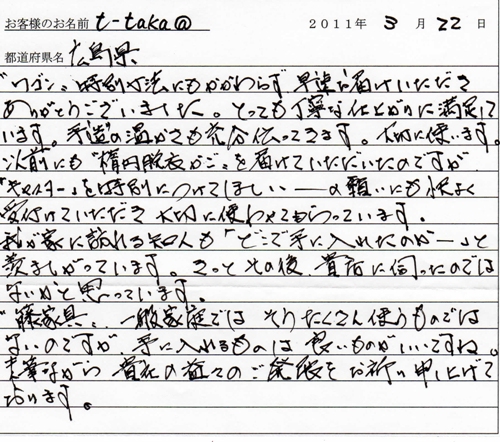 お客様のお名前 t-taka@ 2011年 3月 22日
都道府県名 広島県
"ワゴン"特別寸法にもかかわらず早速お届けいただき
ありがとうございました。とっても丁寧な仕上がりに満足して
います。手造りの温かさも充分伝ってきます。大切に使います。
以前にも"楕円脱衣かご"を届けていただいたのですが
"キャスター"を特別につけてほしい──の願いにも快よく
受付けていただき大切に使わせてもらっています。
我が家に訪れる知人も「どこで手に入れたのか──」と
羨ましがっています。きっとその後、貴店に伺ったのでは
ないかと思っています。
"籐家具"、一般家庭ではそうたくさん使うものでは
ないのですが、手に入れるものは良いものがいいですね。
末筆ながら貴社の益々のご発展をお祈り申し上げて
おります。